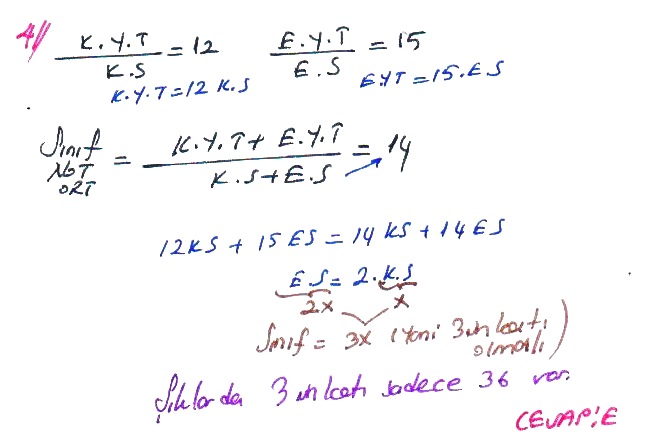 4// K.Y.T / K.S = 12 E.Y.T / E.S = 15
K.Y.T=12 K.S EYT=15.ES
Sınıf NOT ORT = K.Y.T + E.Y.T / K.S+E.S = 14
12KS + 15 ES = 14 KS + 14 ES
E.S = 2.K.S
2x x
Sınıf = 3x (Yani 3ün katı olmalı)
Şıklarda 3 ün katı sadece 36 var.
CEVAP:E